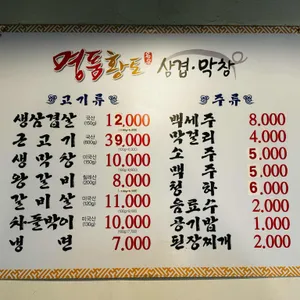 명품황토 삼겹·막창
고기류
생삼겹살 국산 (150g) 12,000
근고기 국산 (600g) 39,000
생막창 미국산 (150g) 10,000
왕갈비 칠레산 (200g) 8,000
갈비살 미국산 (120g) 11,000
차돌박이 미국산 (130g) 10,000
냉면 7,000
주류
백세주 8,000
막걸리 4,000
소주 5,000
맥주 5,000
청하 6,000
음료수 2,000
공기밥 1,000
된장찌개 2,000